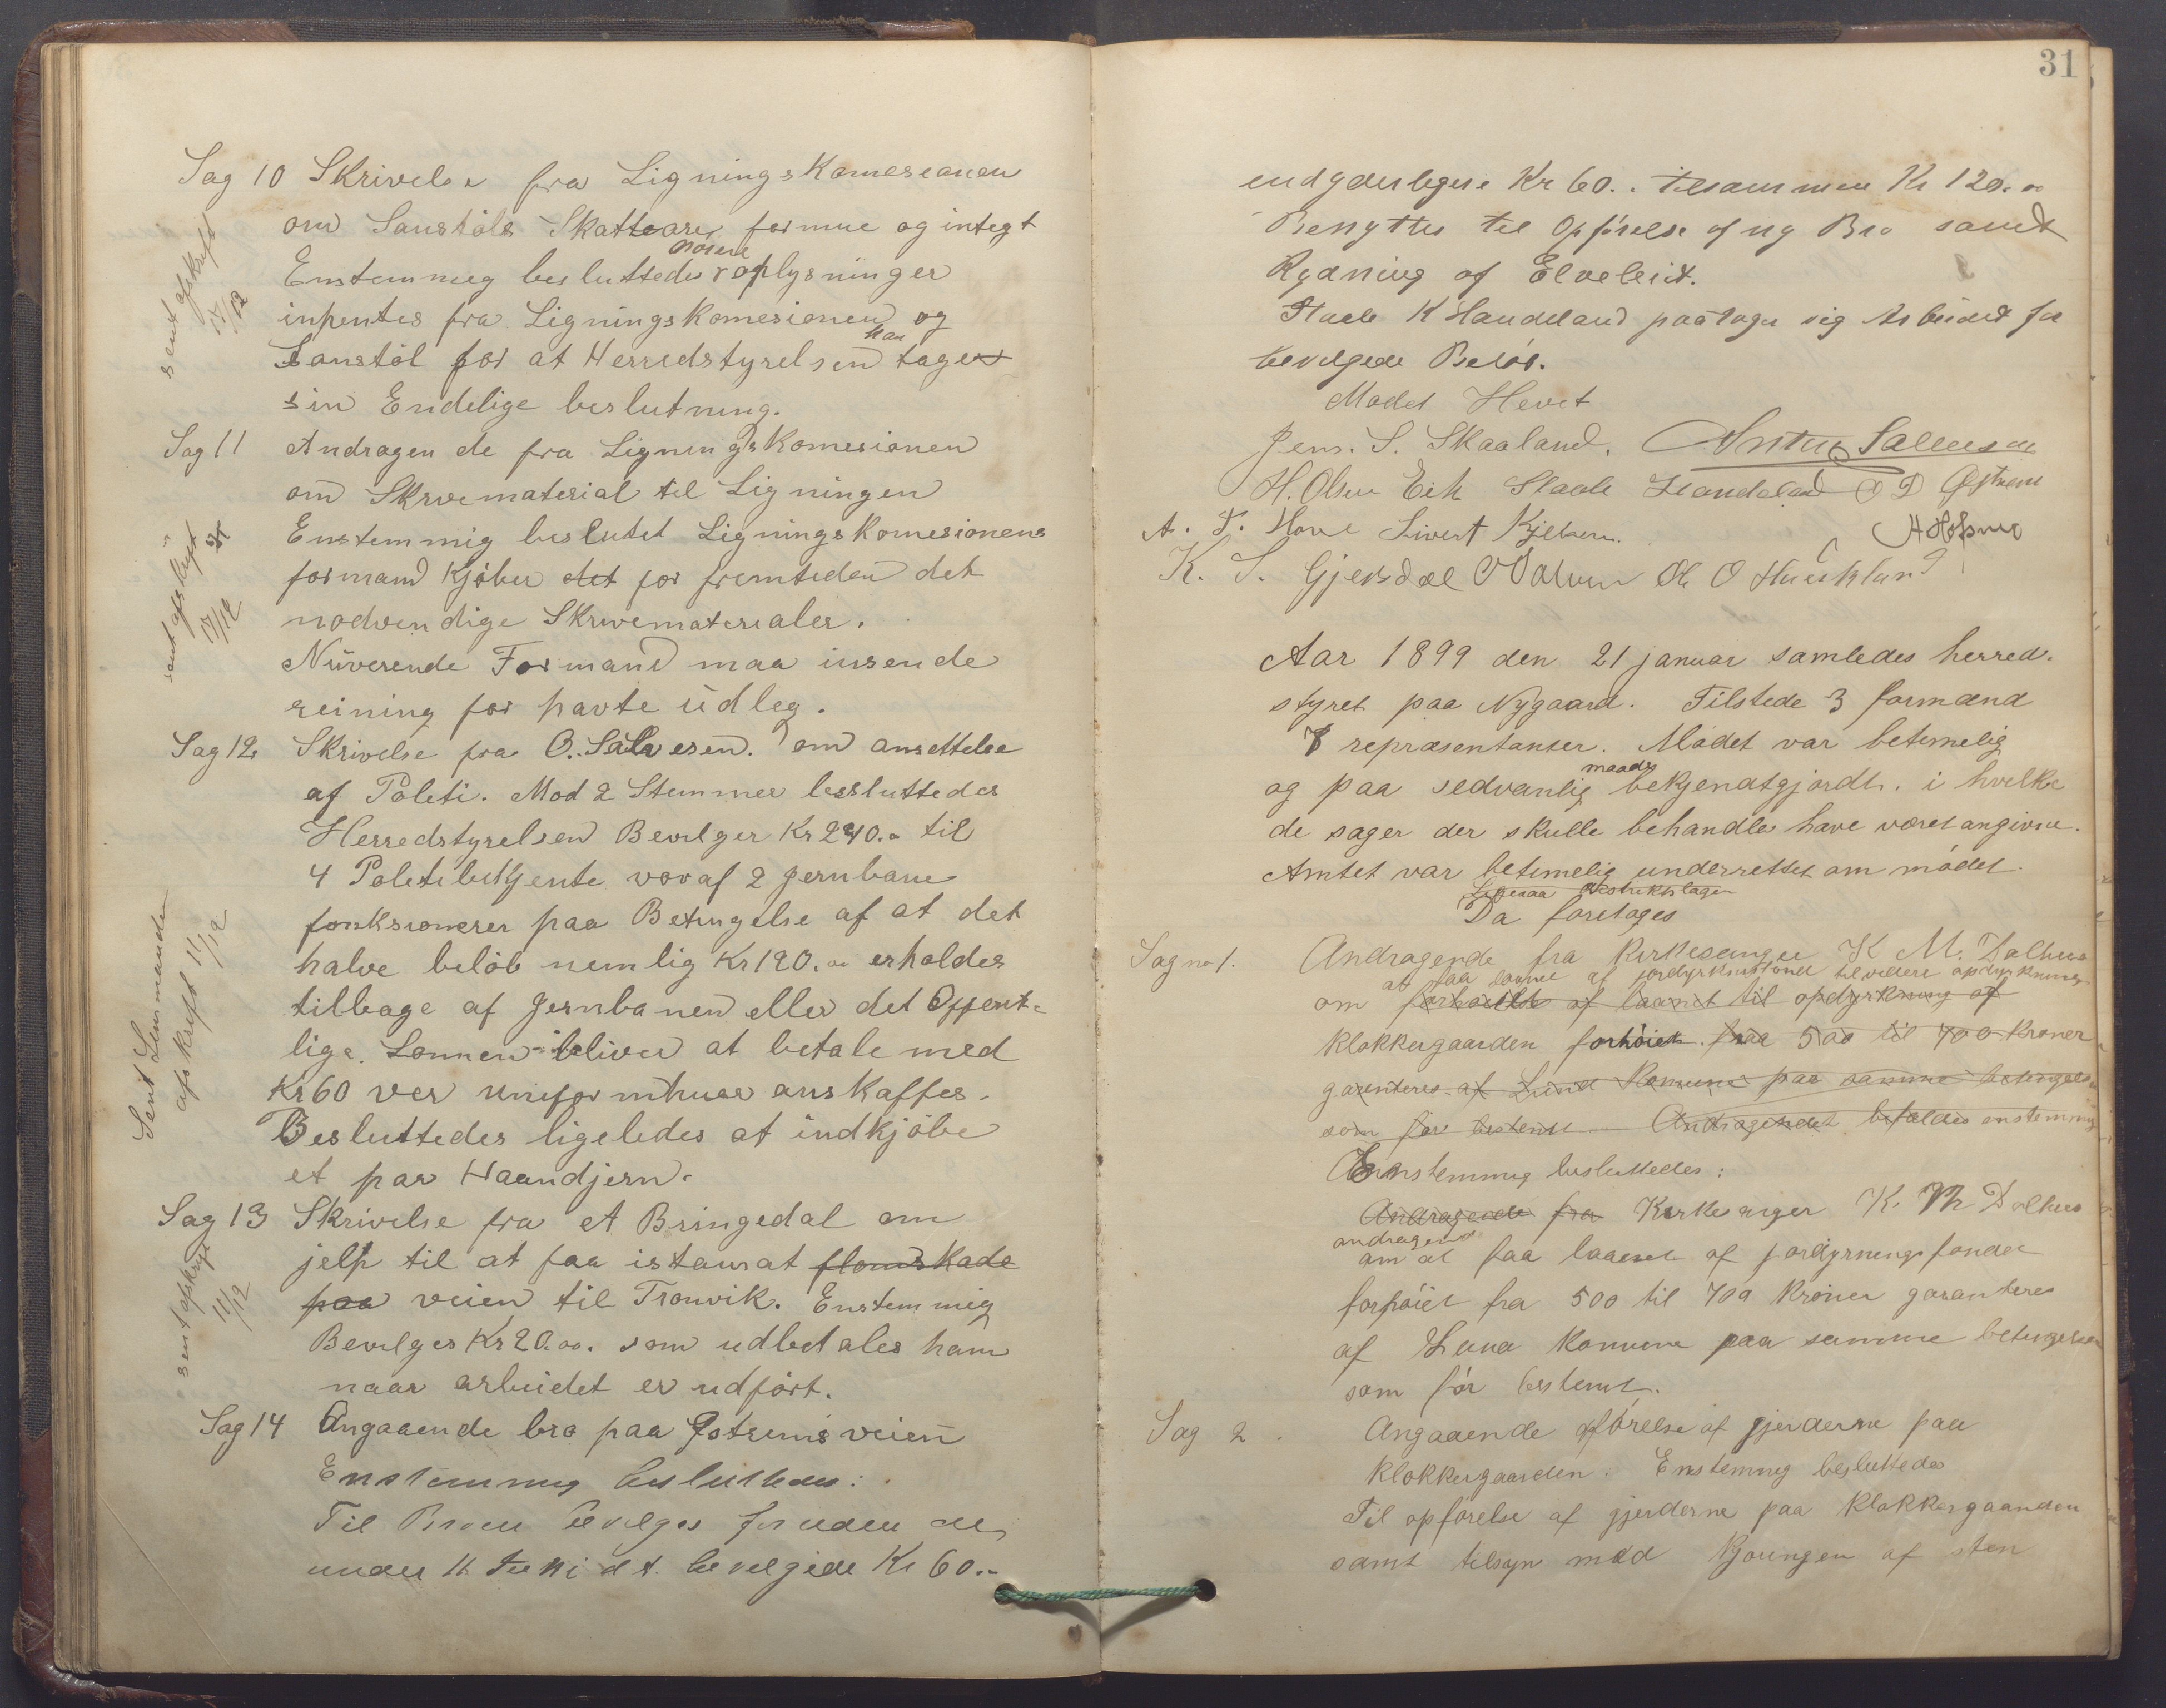 Sag 10 Skrivelse fra Ligningskomesionen
om Sanstöls Skatteare formue og integt
Enstemmeg besluttedes nöiere oplysninger
inhentes fra Ligningskomesionen og
Sanstöl for at Herredstyrelsen kan tage
sin Endelige beslutning.
sent afskrift
17/12
Sag 11 Andragende fra Ligningskomesionen
om Skrvematerial til Ligningen
Enstemmig beslutet Ligningskomesionens
formand kjöber det for fremteden det
nodvendige Skrivematerialer.
Nüverende Formand maa insende
reining for havte üdleg.
sent afskrift
17/12
Sag 12 Skrivelse fra O. Salvesen. om ansettelse
af Politi. Mod 2 Stemmer besluttedes
Herredstyrelsen Bevilger Kr 240.- til
4 Poletibetjente vovaf 2 jernbane
fonksionerer paa Betingelse af at det
halve belöb nemlig Kr 120.oo erholdes
tilbage af Jernbanen eller det Offent-
lige. Lonnen bliver at betale med
Kr 60 ver uniformhuer anskaffes.
Besluttedes ligeledes at indkjöbe
et par Haandjern.
Sent Lensmanden
afskrift 11/12
Sag 13 Skrivelse fra A Bringedal om
jelp til at faa istansat flomskade
paa veien til Tronvik. Enstemmig
Bevilges Kr 20.oo. som udbetales ham
naar arbeidet er udfört.
sent afskrift
11/12
Sag 14 Angaaende bro paa Østremsveien
Enstemmig besluttedes:
Til Broen bevilges foruden de
under 11 Juni d A. bevilgede Kr 60.-
31
endyderligere Kr 60.. tilsammen Kr 120.oo
Benyttes til Opförelse af ny Bro samt
Rydning af Elveleiet.
Staale K Handeland paatager sig Arbeidet for
bevilgede Belöb.
Mödet Hevet
Jens. S. Skaaland. Anton Salvesen
H. Olsen Eik Staale Handeland O D Østrem
A. T. Hove Sivert Kjelsen. A Hofsmo
K. S. Gjersdal
Aar 1899 den 21 januar samledes herred-
styret paa Nygaard. Tilstede 3 formænd
8 repræsentanter. Mödet var betimelig
og paa sedvanlig maade bekjendtgjordt. i hvilke
de sager der skulle behandles have været angivne.
Amtet var betimelig underrettet om mödet.
Ligesaa distriktslægen
Da foretoges
Sag no 1. Andragende fra Kirkesanger K M. Dalhus
at faa laanet af jordyrkn.fondet til videre opdyrkning
om forhöielse af laanet til opdyrkning af
klokkergaarden forhöiet fra 500 til 700 Kroner
garenteres af Lund Komune paa samme betingelse
som för bestemt Andragendet befaldes enstemmig
Enstemmig besluttedes:
Andragende fra Kirkesanger K. M Dalhus
andragende
om at faa laanet af jordyrkningsfondet
forhöiet fra 500 til 700 Kroner garanteres
af Lund Komune paa samme betingelser
som för bestemt.
Sag 2. Angaaende opförelse af gjerderne paa
Klokkergaarden. Enstemmig besluttedes
Til opförelse af gjerderne paa Klokkergaarden
samt tilsyn med Kjöringen af sten